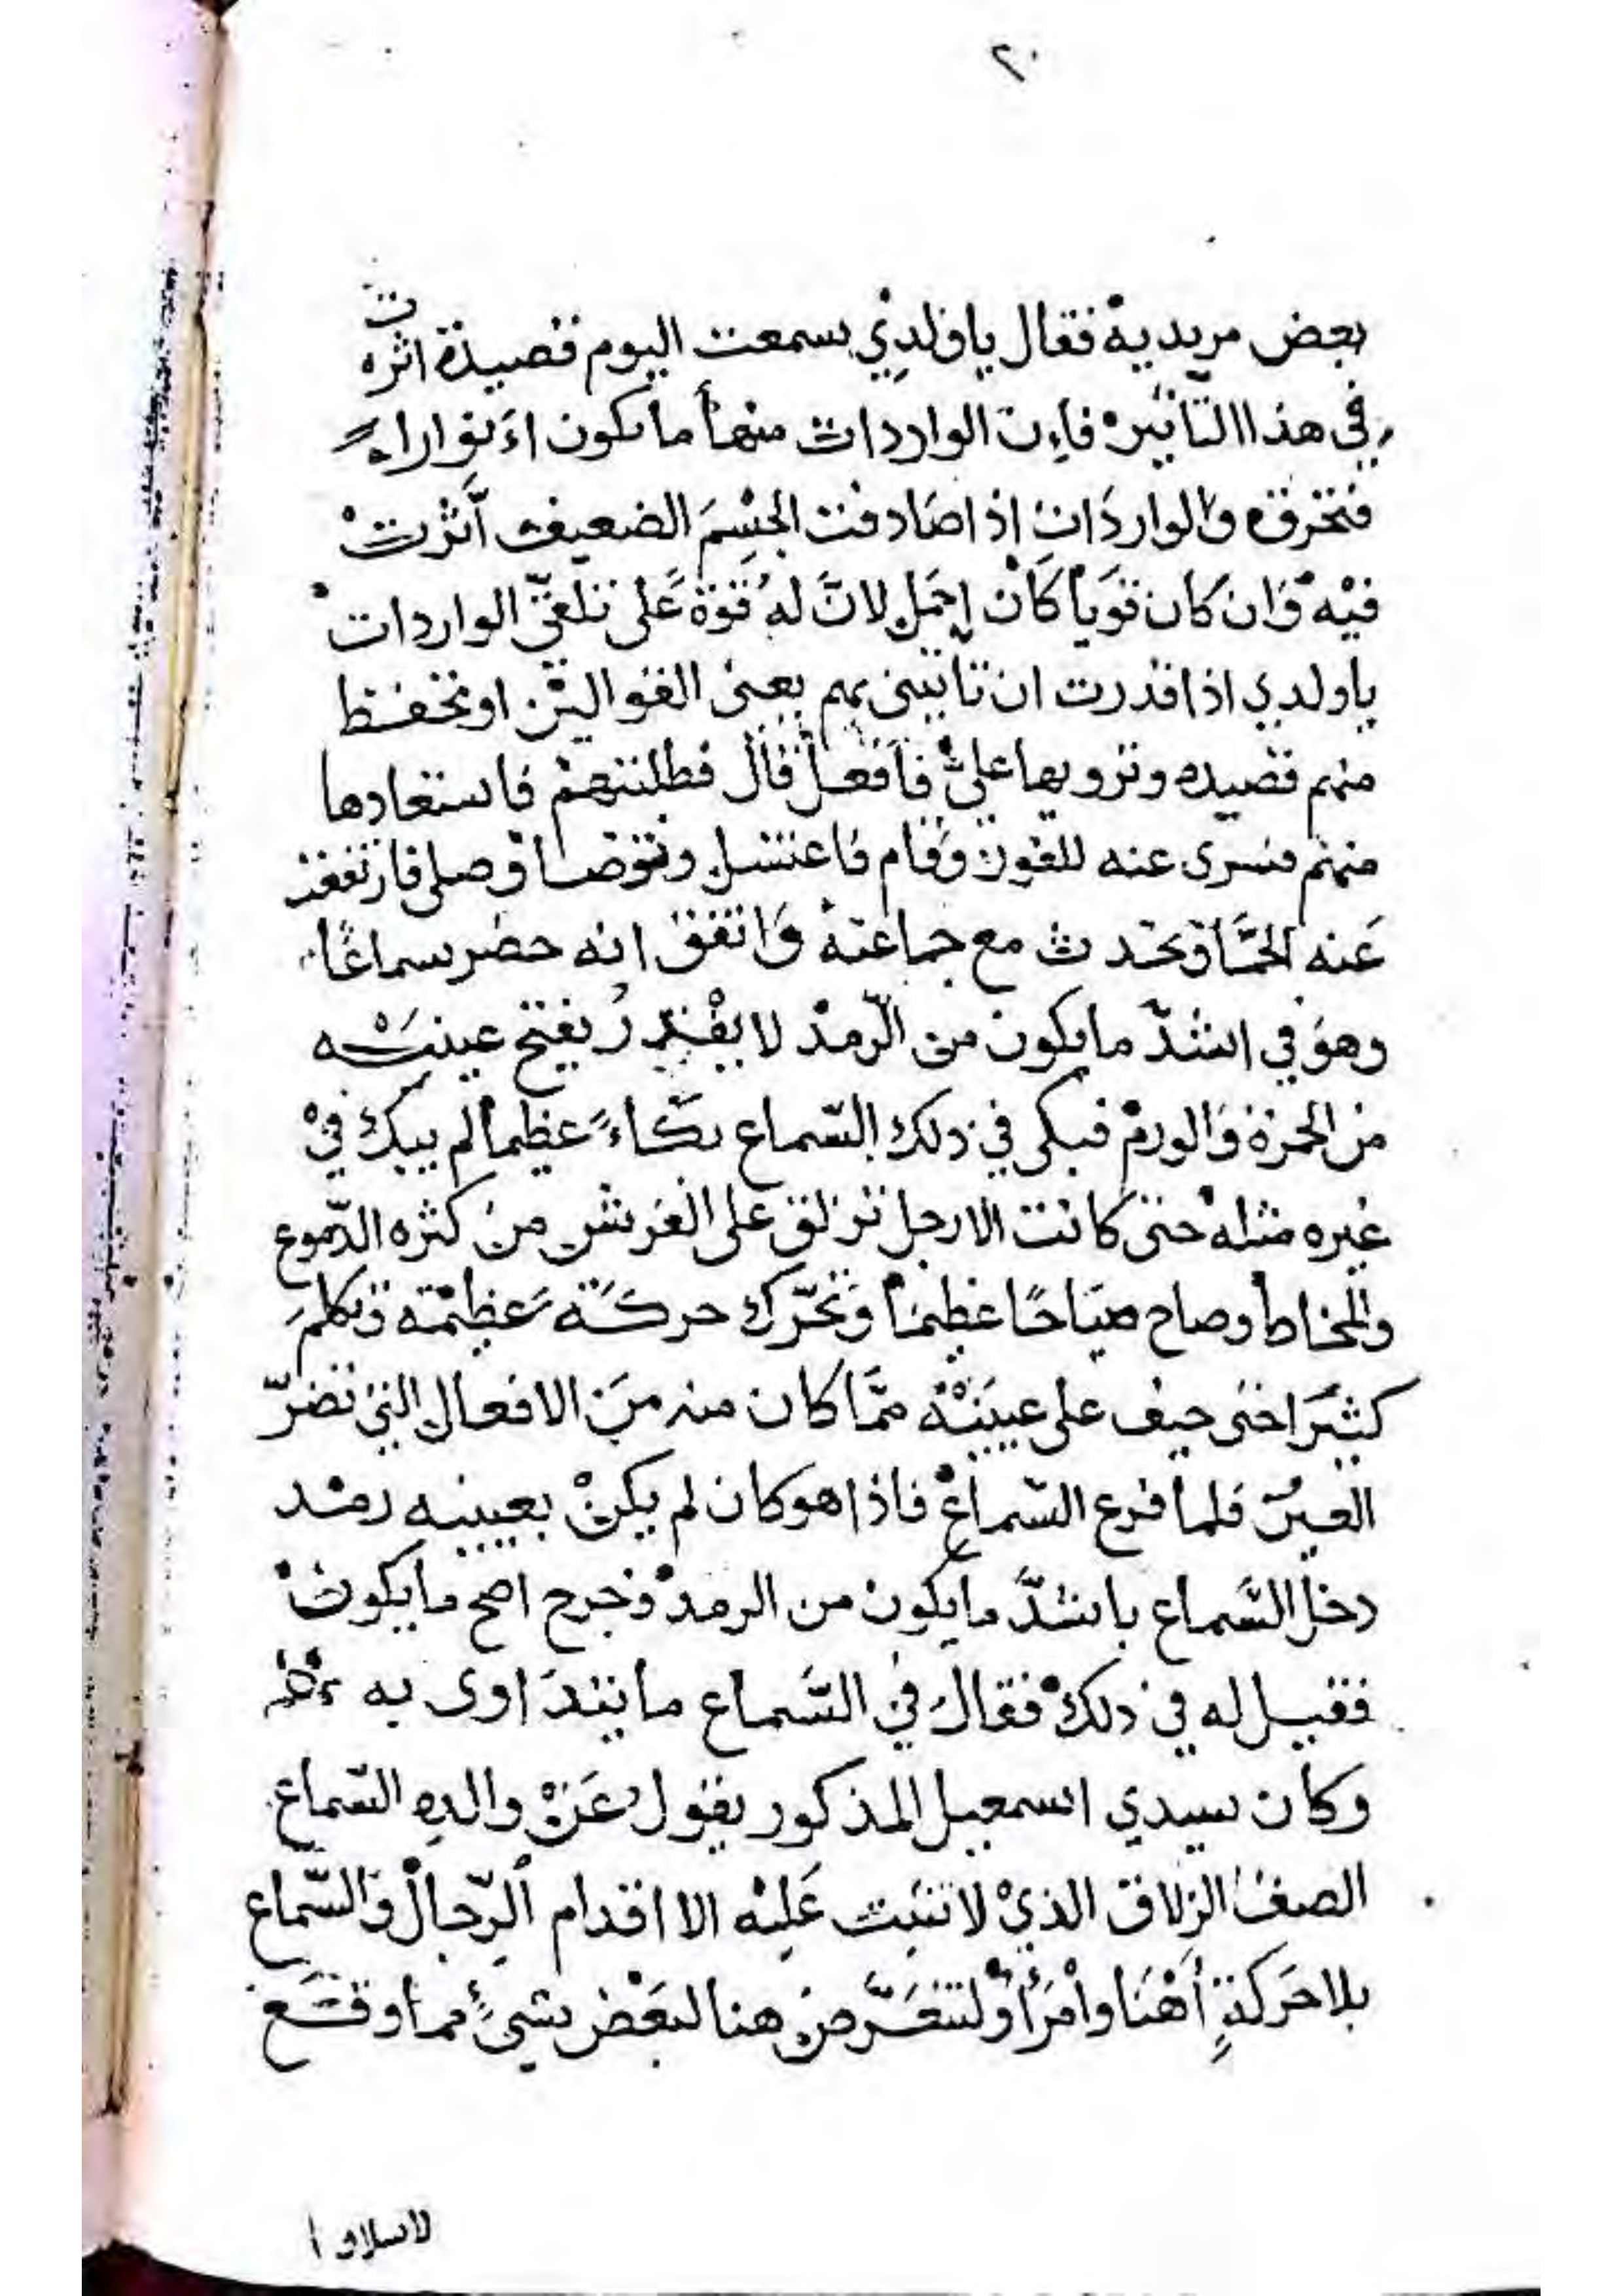 ٢٠
بعض مريديه فقال ياولدي سمعت اليوم قصيدة اثرت
في هذا التأثير فاءن الواردات منها ما يكون اءنوارا
فتخرق والواردات إذا صادفت الجسم الضعيف أثرت
فيه وان كان قوياً كان احمل لانّ له قوة على تلقي الواردات
ياولدي اذا قدرت ان تأتيني بهم يعني القوالين او تحفظ
منهم قصيده وترويها عليّ فافعل قال فطلبتهم فاستعادها
منهم فسرى عنه للفور وقام فاغتسل وتوضأ وصلى فارتفعت
عنه الحمّا وتحدث مع جماعته واتفق انه حضر سماعًا
وهو في اشدّ مايكون من الرّمد لا يقدر يفتح عينيه
من الحمرة والورم فبكى في ذلك السّماع بكاءً عظيماً لم يبك في
غيره مثله حتى كانت الارجل تزلق على الفرش من كثره الدّموع
والمخاط وصاح صياحًا عظيمًا وتحرّك حركة عظيمة وتكلم
كثيرا حتى خيف على عينيه ممّا كان منه من الافعال التي تضرّ
العين فلما فرغ السّماع فاذا هو كان لم يكن بعينيه رمد
دخل السّماع باشدّ مايكون من الرمد وخرج اصح مايكون
فقيل له في ذلك فقال في السّماع ما يتداوى به
وكان سيدي اسمعيل المذكور يقول عن والده السّماع
الصف الزلاق الذي لا تثبت عليه الا اقدام الرّجال والسّماع
بلا حركةٍ أهنا وامرأ ولنتعرّض هنا لبعض شيءٍ مما وقع
لاسلاف